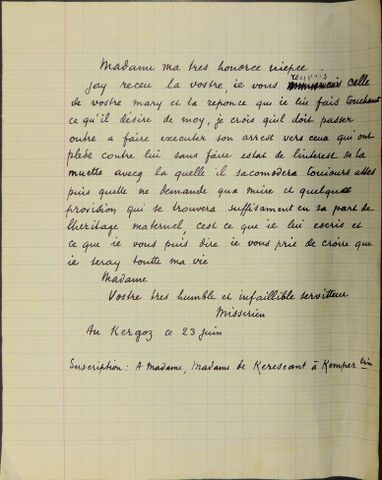 Madame ma tres honoree niepce
jay receu la vostre, ie vous renvois celle
de vostre mary et la reponce que ie lui fais touchant
ce qu'il désire de moy, je crois quil doit passer
outre a faire executer son arrest vers ceux qui ont
pledé contre lui sans faire estat de linterest de la
muette avecq la quelle il sacomodera tousiours asses
puis quelle ne demande qua mire et quelque
provision qui se trouvera suffisament en sa part de
lheritage maternel, cest ce que ie lui escris et
ce que ie vous puis dire ie vous prie de croire que
ie seray toutte ma vie
Madame
Vostre tres humble et infaillible servitteur
Missirien
Au Kergoz ce 23 juin
Suscription: A madame, Madame de Kerescant à Kemper tin